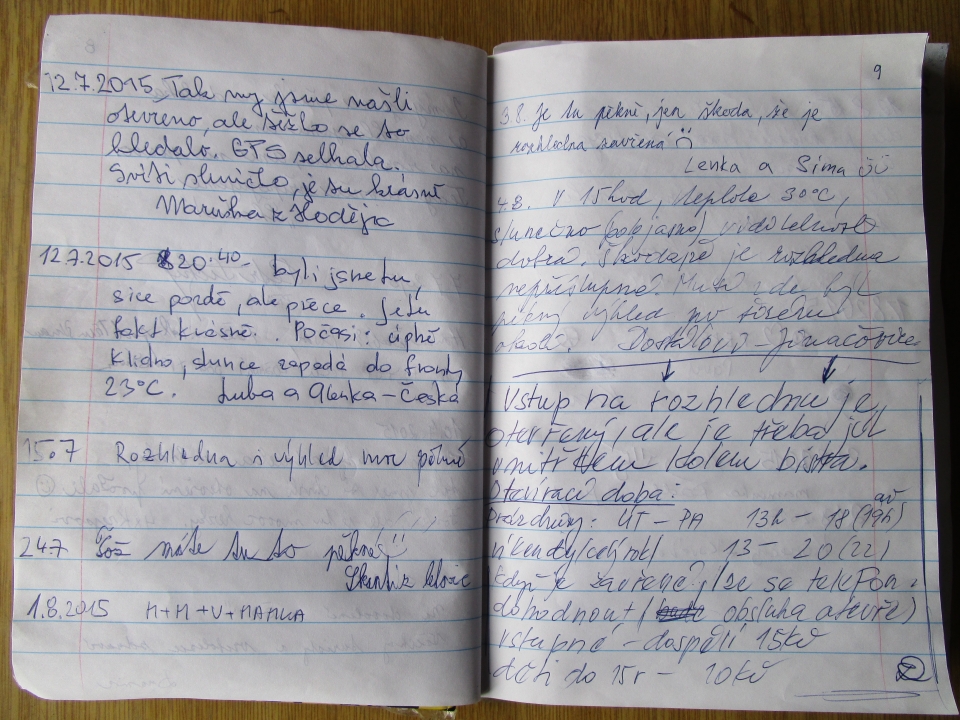 8
12.7.2015 Tak my jsme našli
otevřeno, ale těžko se to
hledalo. GPS selhala.
Svítí sluníčko, je tu krásně
Maruška z
12.7.2015 20:40 byli jsme tu,
sice pozdě, ale přece. Je tu
fakt krásně. Počasí: úplně
klidno, slunce zapadá do fronty
23°C. Luba a Alenka - Česká
15.7 Rozhledna i výhled moc pěkné
24.7 Tož máte tu to pěkné
1.8.2015 M+M+V+MAMKA
9
3.8. Je tu pěkně, jen škoda, že je
rozhledna zavřená
Lenka a Sima
4.8. V 15hod, teplota 30°C,
slunečno (polojasno) viditelnost
dobrá. Škoda, že je rozhledna
nepřístupná. Musí zde být
pěkný výhled po širém
okolí. Dostálovi -
Vstup na rozhlednu je
otevřený, ale je třeba jít
vnitřkem kolem bistra.
Otevírací doba:
Prázdniny: ÚT - PÁ 13h - 18 (až 19h)
víkendy (celý rok) 13 - 20 (22)
Když je zavřené, lze se telefon.
dohodnout ( obsluha otevře)
vstupné - dospělí 15kč
děti do 15r - 10kč